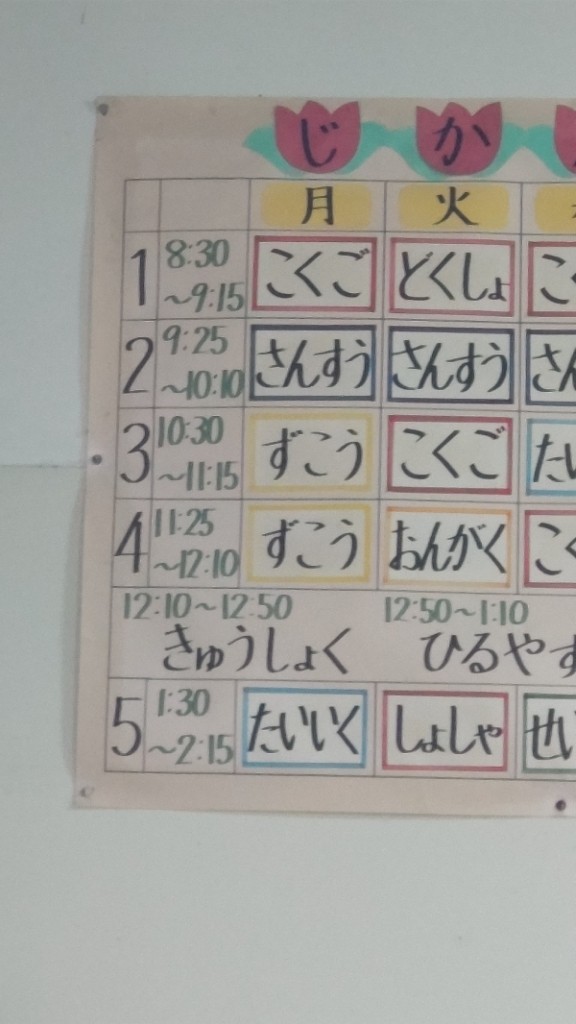 じか
月 火
1 8:30 ~9:15 こくご どくしょ
2 9:25 ~10:10 さんすう さんすう
3 10:30 ~11:15 ずこう こくご
4 11:25 ~12:10 ずこう おんがく
12:10~12:50 12:50~1:10
きゅうしょく ひるやす
5 1:30 ~2:15 たいいく しょしゃ